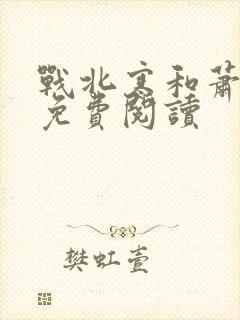 戰北寒和蕭
免費閱讀
樊虹壹